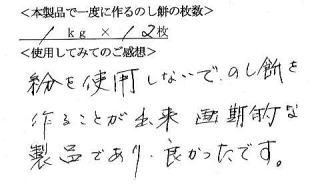 <本製品で一度に作るのし餅の枚数>
1 kg × 12枚
<使用してみてのご感想>
粉を使用しないで、のし餅を
作ることが出来 画期的な
製品であり、良かったです。